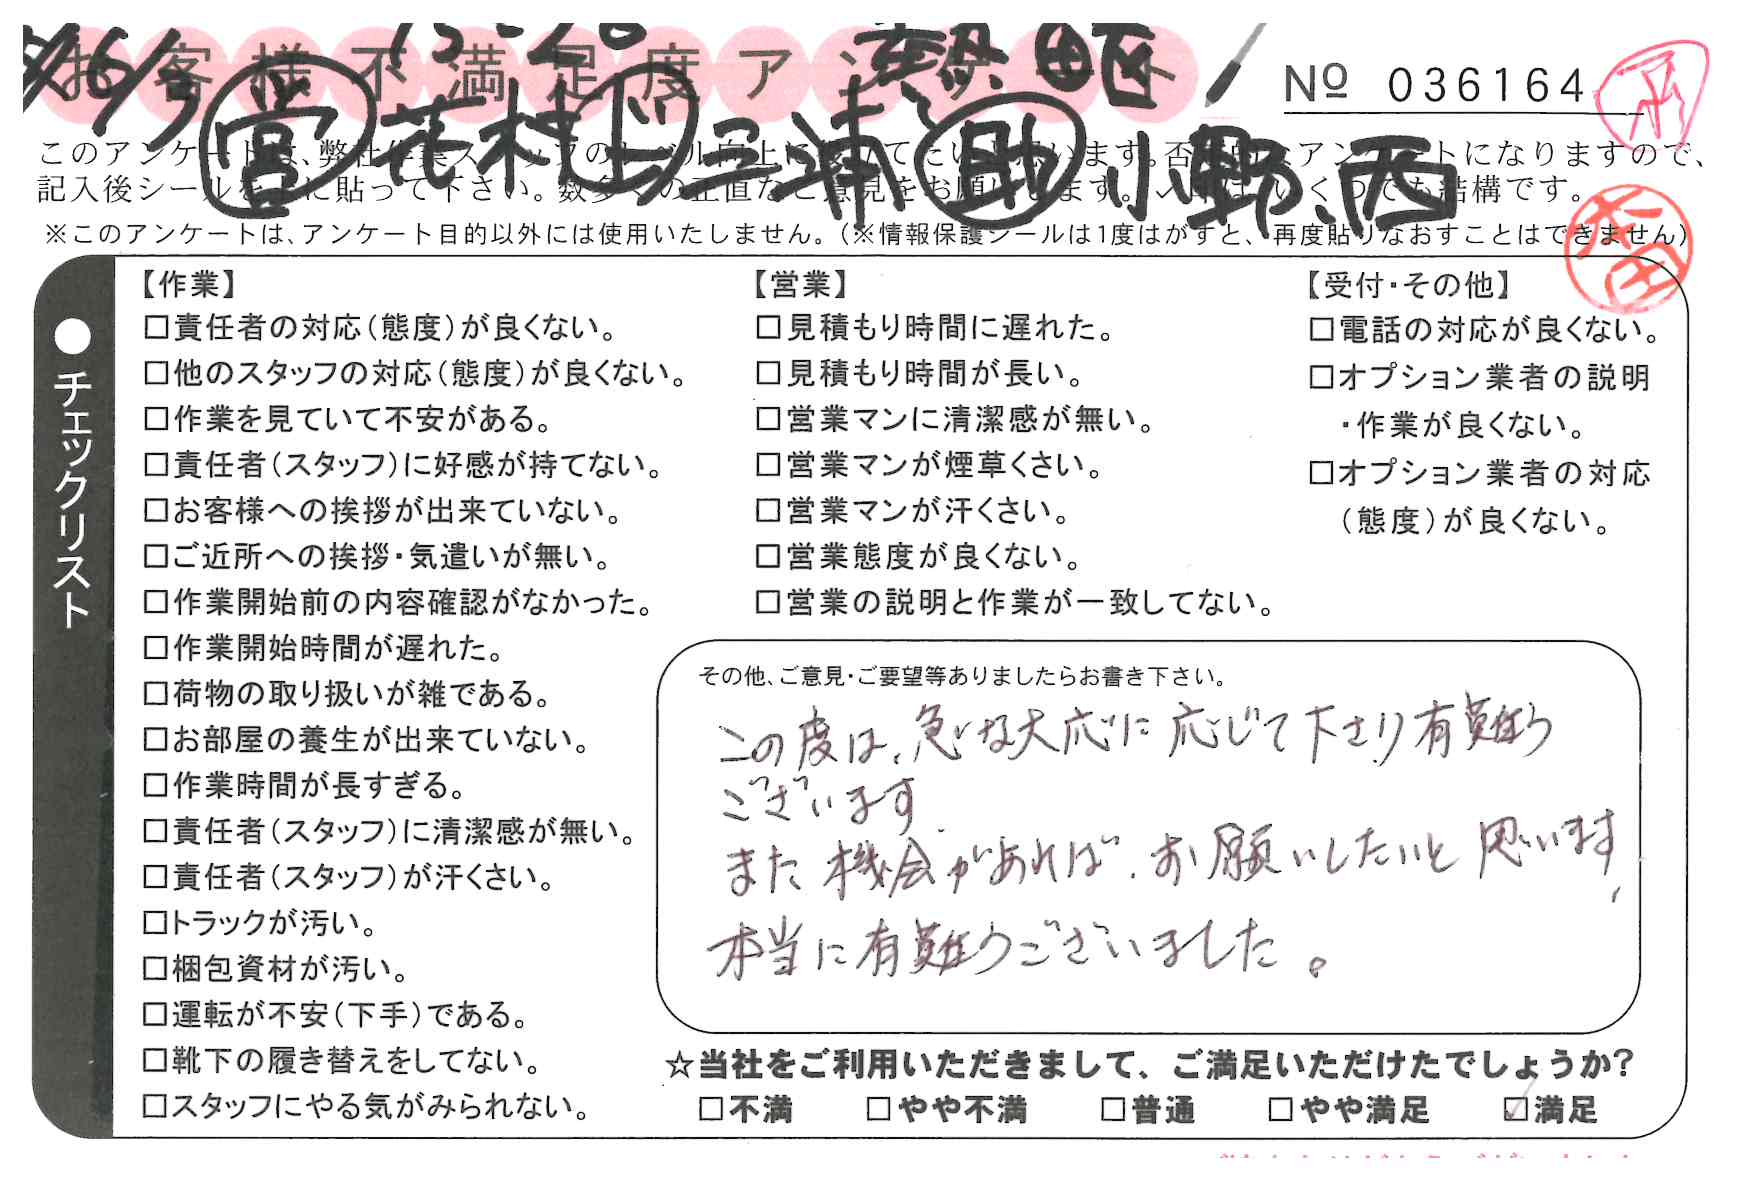 お客様不満足度アンケート
№ 036164
営 花村 上 三浦 助 小野、西
このアンケートは、弊社作業スタッフのレベル向上に役立てたいと思います。否定的なアンケートになりますので、
記入後シールを上に貼って下さい。数多くの正直なご意見をお願いします。
※このアンケートは、アンケート目的以外には使用いたしません。(※情報保護シールは1度はがすと、再度貼りなおすことはできません)
●チェックリスト
【作業】
□責任者の対応(態度)が良くない。
□他のスタッフの対応(態度)が良くない。
□作業を見ていて不安がある。
□責任者(スタッフ)に好感が持てない。
□お客様への挨拶が出来ていない。
□ご近所への挨拶・気遣いが無い。
□作業開始前の内容確認がなかった。
□作業開始時間が遅れた。
□荷物の取り扱いが雑である。
□お部屋の養生が出来ていない。
□作業時間が長すぎる。
□責任者(スタッフ)に清潔感が無い。
□責任者(スタッフ)が汗くさい。
□トラックが汚い。
□梱包資材が汚い。
□運転が不安(下手)である。
□靴下の履き替えをしてない。
□スタッフにやる気がみられない。
【営業】
□見積もり時間に遅れた。
□見積もり時間が長い。
□営業マンに清潔感が無い。
□営業マンが煙草くさい。
□営業マンが汗くさい。
□営業態度が良くない。
□営業の説明と作業が一致してない。
【受付・その他】
□電話の対応が良くない。
□オプション業者の説明
・作業が良くない。
□オプション業者の対応
(態度)が良くない。
その他、ご意見・ご要望等ありましたらお書き下さい。
この度は、急な大応に応じて下さり有難う
ございます
また機会があれば、お願いしたいと思います、
本当に有難うございました。
☆当社をご利用いただきまして、ご満足いただけたでしょうか?
□不満 □やや不満 □普通 □やや満足 ☑満足